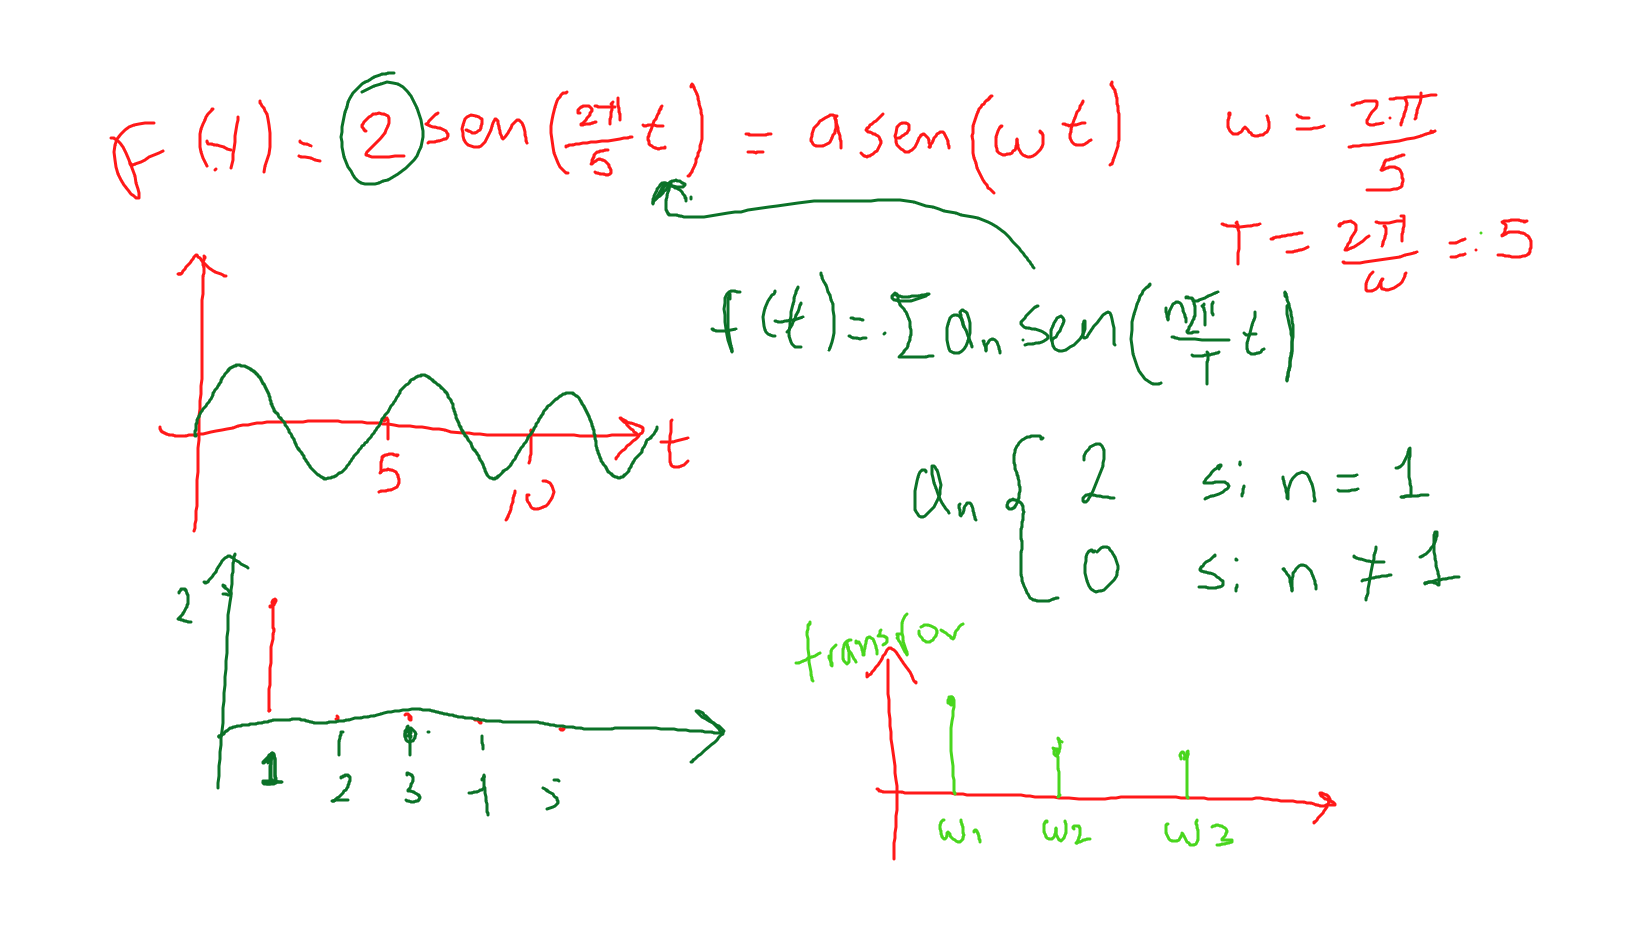 F(t) = 2 sen(2π/5 t) = a sen(ωt)
ω = 2π/5
T = 2π/ω = 5
f(t) = Σ an sen(n2π/T t)
t
5 10
an { 2 si n = 1
0 si n ≠ 1
2
1 2 3 4 5
transfor
ω1 ω2 ω3